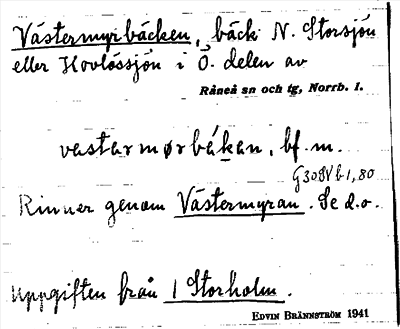 Västermyrbäcken, bäck N. Storsjön
eller Hovlössjön i Ö. delen av
Råneå sn och tg, Norrb. l.
vastarmørbäkan, bf. m.
G30SV b 1,80
Rinner genom Västermyran. Se d.o.
Uppgiften från 1 Storholm.
EDVIN BRÄNNSTRÖM 1941